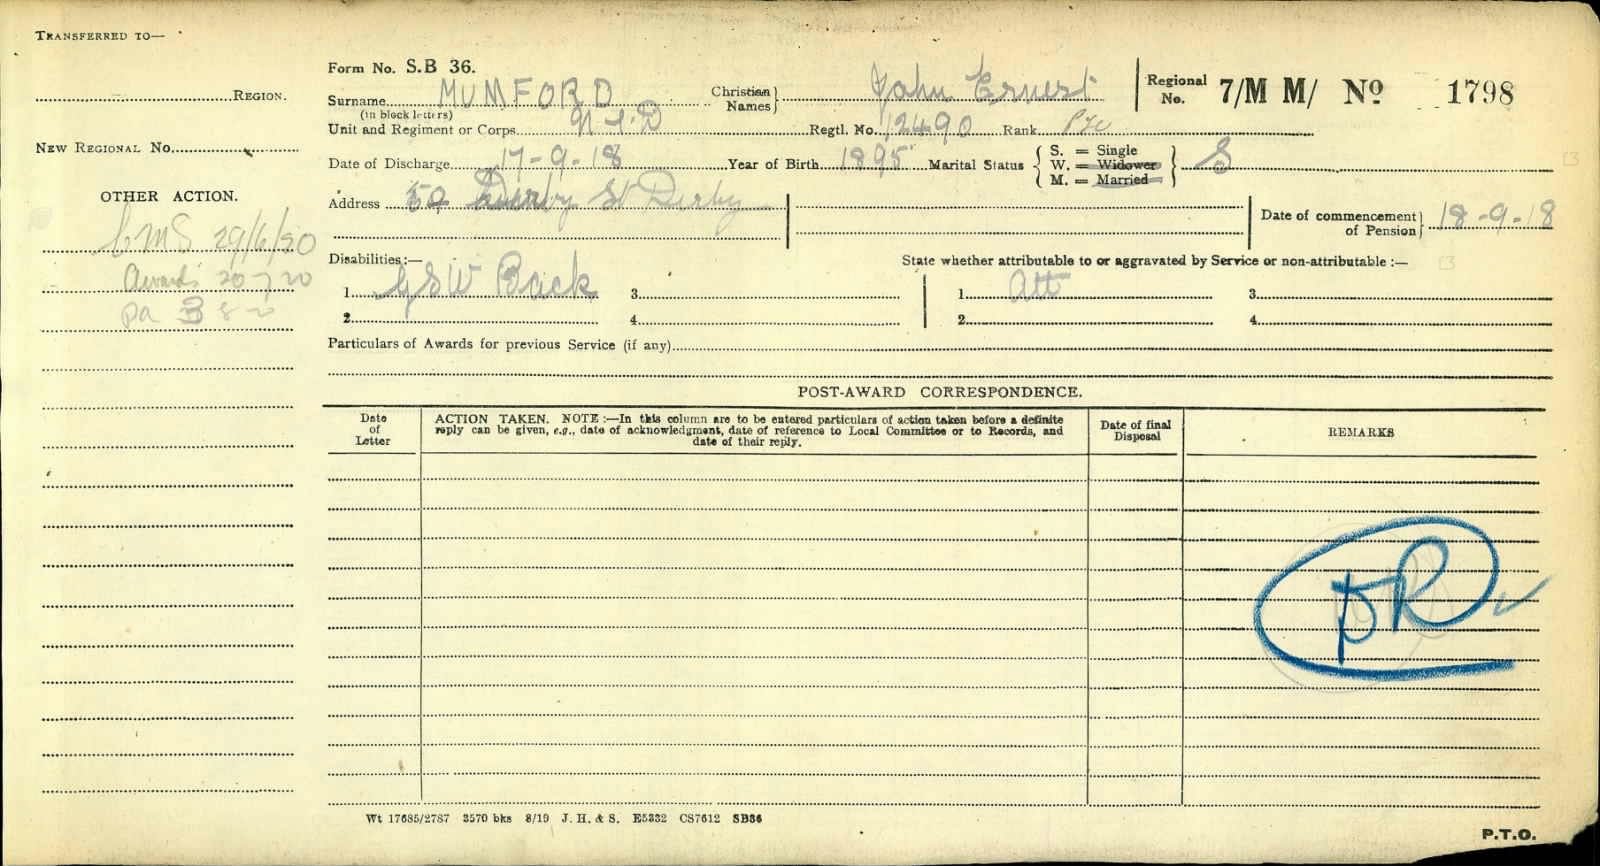 TRANSFERRED TO—
REGION.
NEW REGIONAL No.
OTHER ACTION.
CMS 29/6/20
Awards 20-7-20
pa 3 8 20
Form No. S.B 36.
Surname MUMFORD
(in block letters)
Christian Names John Ernest
Regional No. 7/M M/ No 1798
Unit and Regiment or Corps
Regtl. No. 12490 Rank Pte
Date of Discharge 17-9-18 Year of Birth 1895 Marital Status
S. = Single
W. = Widower
M. = Married
S
Address St Derby
Date of commencement of Pension 18-9-18
Disabilities:—
State whether attributable to or aggravated by Service or non-attributable :—
1. GSW Back 3. 1. Att 3.
2. 4. 2. 4.
Particulars of Awards for previous Service (if any)
POST-AWARD CORRESPONDENCE.
Date of Letter
ACTION TAKEN. NOTE :—In this column are to be entered particulars of action taken before a definite
reply can be given, e.g., date of acknowledgment, date of reference to Local Committee or to Records, and
date of their reply.
Date of final Disposal
REMARKS
DR
Wt 17685/2787 3570 bks 8/19 J. H. & S. E5332 CS7612 SB36
P.T.O.